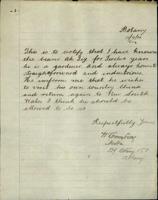 Botany
This is to notify that I have known
the bearer Ah Sig for Twelve years
he is a gardener and always found
straightforward and industrious
He informs me that he wishes
to visit his own country China
and return again to New South
Wales I think he should be
allowed to do so
Respectfully Yours
Botany